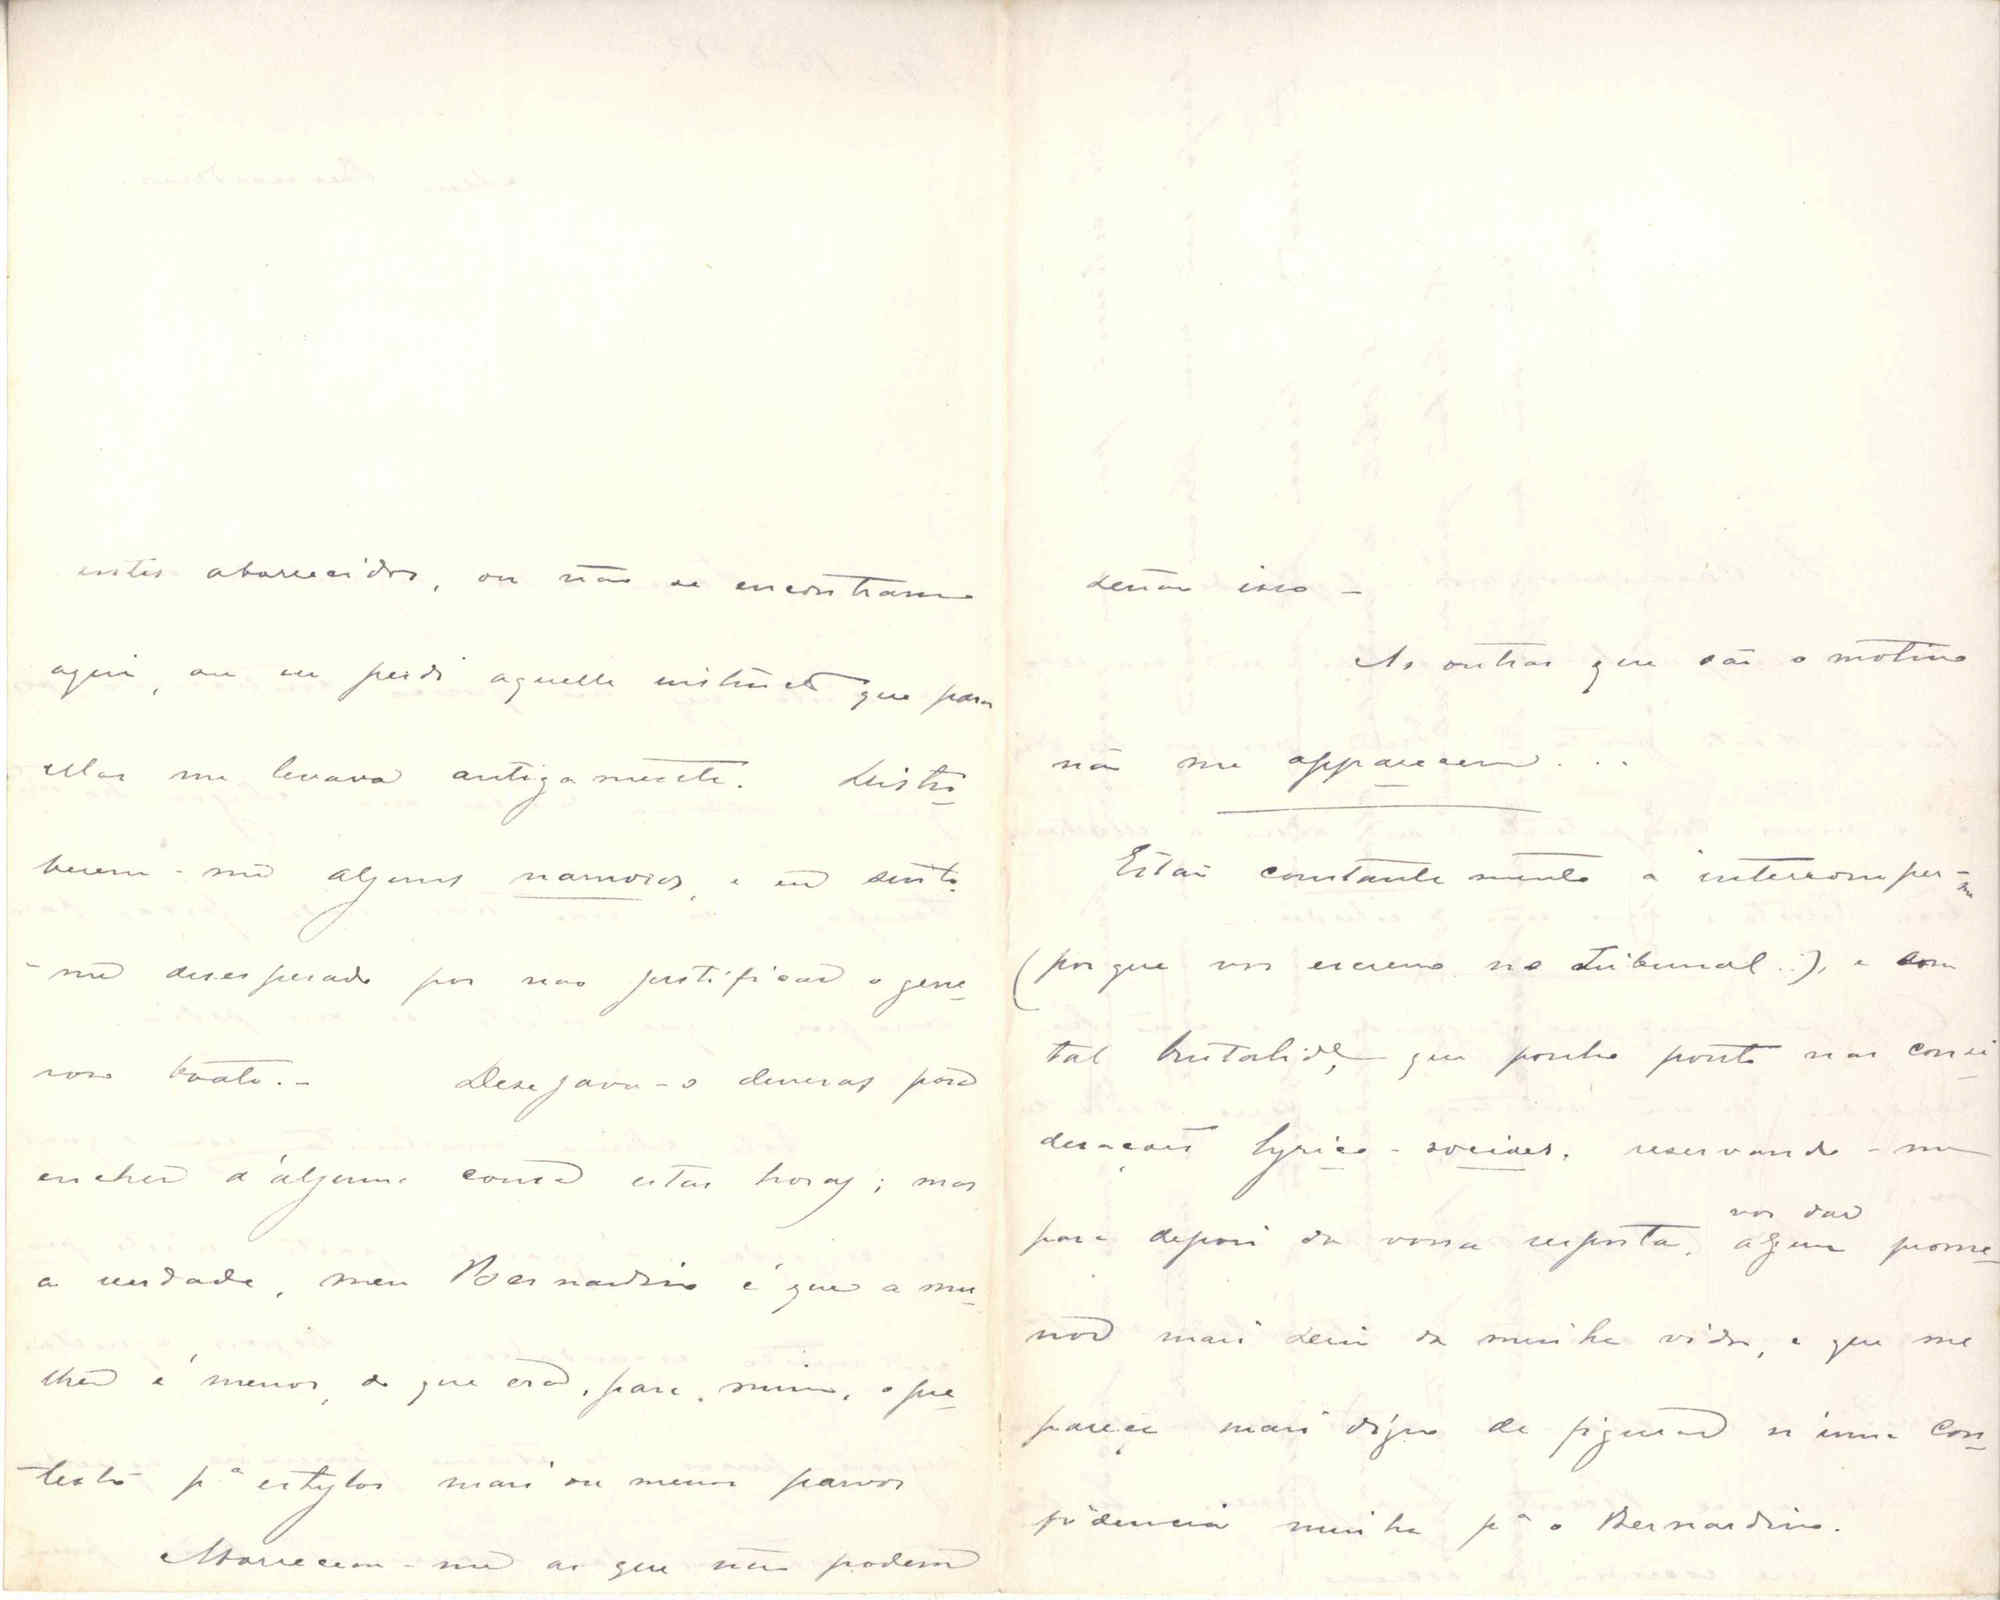 estes aborrecidos, ou não se encontram
aqui, ou eu perdi aquelle instincto que para
ellas me levava antigamente. Distri-
buem-me alguns namoros, e eu sinto-
-me desesperado por não justificar o gene-
roso boato. - Desejava-o deveras para
encher d'alguma cousa estas horas; mas
a verdade, meu Bernardino é que a mu-
lher é menos, do que era, para mim, o pre-
texto pª estylos mais ou menos parvos
Aborrecem-me as que não podem
senão isso -
As outras que são o motivo
não me apparecem...
Estão constantemente a interromper-me
(porque vos escrevo no Tribunal..), e com
tal brutalide, que ponho ponto nas consi-
derações lyrico-sociaes, reservando-me
para depois da vossa resposta, vos dar algum prome-
nor mais da minha vida, e que me
pareça mais digno de figurar n'uma con-
fidencia minha pª o Bernardino.